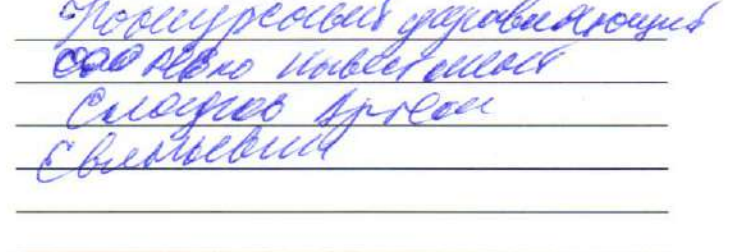 Конкурсный управляющий
ООО инвестмент
Сладков Артем
Евгеньевич